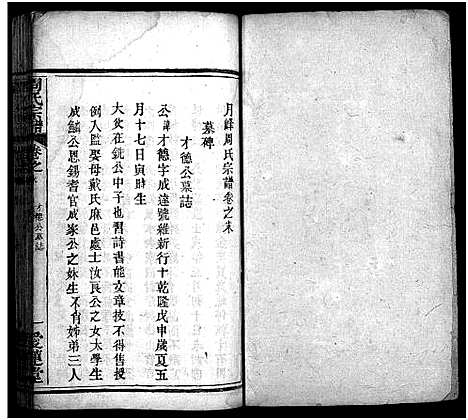 月峰周氏宗譜卷之末
墓碑
才德公墓誌
公諱才德字成遠號維新行十乾隆戊申歲夏五
月十七日寅時生
大父在銑公中子也習詩書能文章技不得售授
例入監娶母戴氏麻邑處士汝良公之女大學生
成鱗公恩錫耆官成家公之妹生不肖姊弟三人
周氏宗譜
卷之
才德公墓誌
愛蓮堂